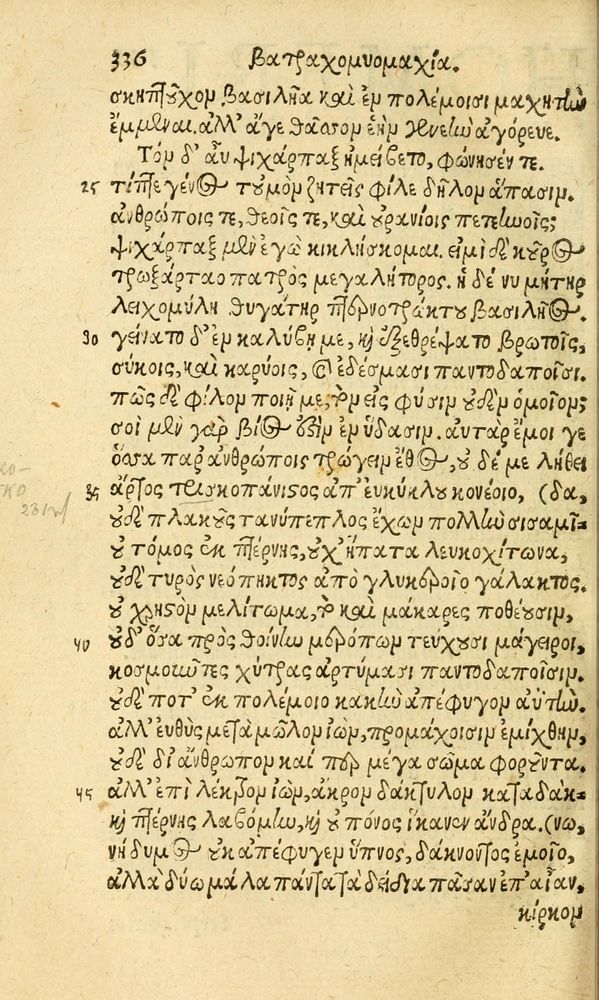 336 βατραχομυομαχία.
σκηπτοῦχον βασιλῆα καὶ ἐν πολέμοισι μαχητὼ
ἔμμεναι. ἀλλ' ἄγε θᾶττον ἑὴν γενεὼ ἀγόρευε.
Τὸν δ' αὖ ψιχάρπαξ ἠμείβετο, φώνησέν τε.
25 τίπτε γένος τοὐμὸν ζητεῖς φίλε δῆλον ἅπασιν.
ἀνθρώποις τε, θεοῖς τε, καὶ οὐρανίοις πετεινοῖς;
ψιχάρπαξ μὲν ἐγὼ κικλήσκομαι. εἰμὶ δὲ κοῦρος
τρωξάρταο πατρὸς μεγαλήτορος. ἡ δέ νυ μήτηρ
λειχομύλη θυγάτηρ πτερνοτρώκτου βασιλῆος.
30 γείνατο δ' ἐν καλύβῃ με, καὶ ἐξεθρέψατο βρωτοῖς,
σύκοις, καὶ καρύοις, καὶ ἐδέσμασι παντοδαποῖσι.
πῶς δὲ φίλον ποιῇ με, τὸν εἰς φύσιν οὐδὲν ὁμοῖον;
σοὶ μὲν γὰρ βίος ἐστὶν ἐν ὕδασιν. αὐτὰρ ἐμοί γε
ὅσσα παρ' ἀνθρώποις τρώγειν ἔθος, οὐ δέ με λήθει
35 ἄρτος τρισκοπάνιστος ἀπ' εὐκύκλου κονέοιο, (δα,
οὐδὲ πλακοῦς τανύπεπλος ἔχων πολλὼ σισαμί-
οὐ τόμος ἐκ πτέρνης, οὐχ ἥπατα λευκοχίτωνα,
οὐδὲ τυρὸς νεόπηκτος ἀπὸ γλυκεροῖο γάλακτος.
οὐ χρηστὸν μελίτωμα, τὸ καὶ μάκαρες ποθέουσιν,
40 οὐδ' ὅσα πρὸς θοίνὼ μερόπων τεύχουσι μάγειροι,
κοσμοιῶτες χύτρας ἀρτύμασι παντοδαποῖσιν.
οὐδέ ποτ' ἐκ πολέμοιο κακὼ ἀπέφυγον ἀϋτὼ.
ἀλλ' εὐθὺς μετὰ μῶλον ἰὼν, προμάχοισιν ἐμίχθην,
οὐδὲ δι' ἄνθρωπον καί περ μέγα σῶμα φοροῦντα.
45 ἀλλ' ἐπὶ λέκτρον ἰὼν, ἄκρον δάκτυλον καταδάκ-
καὶ πτέρνης λαβόμὼ, καὶ οὐ πόνος ἵκανεν ἄνδρα. (νω,
νήδυμος οὐκ ἀπέφυγεν ὕπνος, δάκνοντος ἐμοῖο,
ἀλλὰ δύω μάλα πάντα τὰ δείδια πᾶσαν ἐπ' αἶαν,
κίρκον